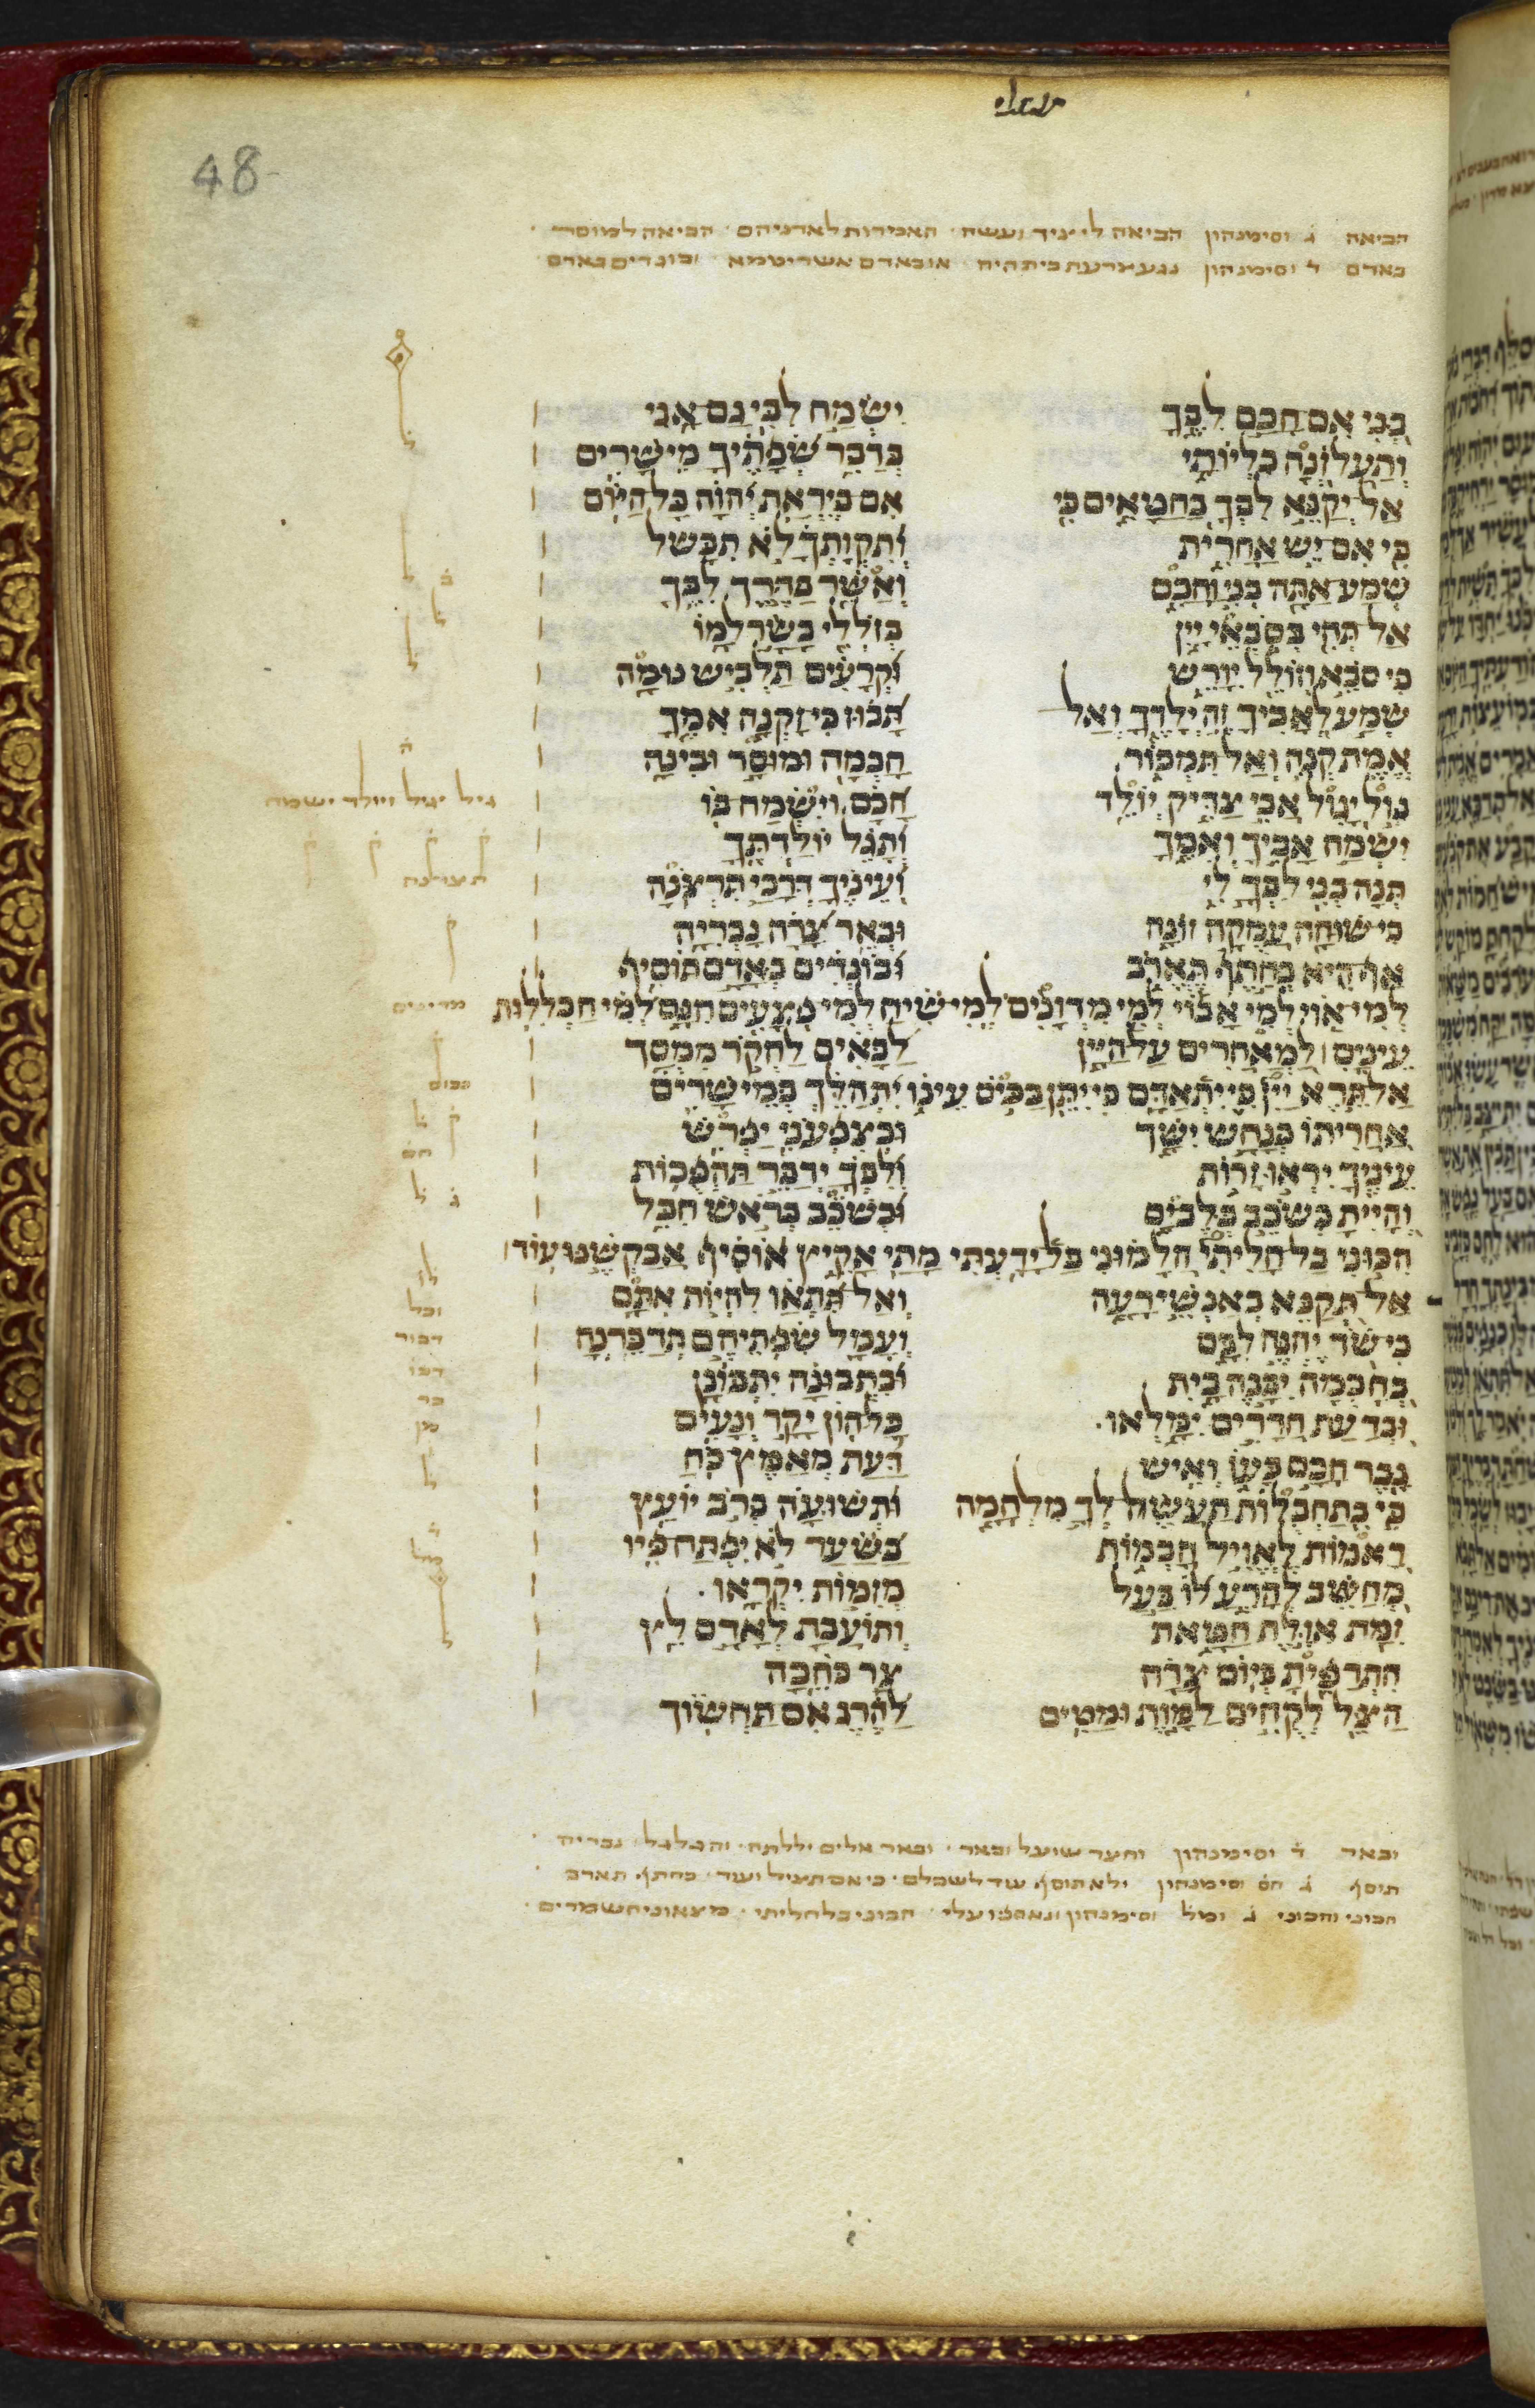 משלי
48
הביאה ג וסימנהון הביאה לי ציד ועשה · האמירות לאדניהם · הביאה למוסר ·
באדם ד וסימנהון נגע צרעת כי תהיה או באדם אשר יטמא ובוגדים באדם
בני אם חכם לבך ישמח לבי גם אני
ותעלזנה כליותי בדבר שפתיך מישרים
אל יקנא לבך בחטאים כי אם ביראת יהוה כל היום
כי אם יש אחרית ותקותך לא תכשל
שמע אתה בני וחכם ואשר בדרך לבך
אל תהי בסבאי יין בזללי בשר למו
כי סבא וזולל יורש וקרעים תלביש נומה
שמע לאביך זה ילדך ואל תבוז כי זקנה אמך
אמת קנה ואל תמכור חכמה ומוסר ובינה
גול יגול אבי צדיק יולד חכם וישמח בו
גיל יגיל ויולד ישמח
ישמח אביך ואמך ותגל יולדתך
תנה בני לבך לי ועיניך דרכי תרצנה
תצרנה
כי שוחה עמקה זונה ובאר צרה נכריה
אף היא כחתף תארב ובוגדים באדם תוסיף
למי אוי למי אבוי למי מדונים למי שיח למי פצעים חנם למי חכללות
מדינים
עינים למאחרים על היין לבאים לחקר ממסך
אל תרא יין כי יתאדם כי יתן בכיס עינו יתהלך במישרים
בכוס
אחריתו כנחש ישך וכצפעני יפרש
עיניך יראו זרות ולבך ידבר תהפכות
והיית כשכב בלב ים וכשכב בראש חבל
הכוני בל חליתי הלמוני בל ידעתי מתי אקיץ אוסיף אבקשנו עוד
אל תקנא באנשי רעה ואל תתאו להיות אתם
כי שד יהגה לבם ועמל שפתיהם תדברנה
בחכמה יבנה בית ובתבונה יתכונן
ובדעת חדרים ימלאו כל הון יקר ונעים
גבר חכם בעז ואיש דעת מאמץ כח
כי בתחבלות תעשה לך מלחמה ותשועה ברב יועץ
ראמות לאויל חכמות בשער לא יפתח פיו
מחשב להרע לו בעל מזמות יקראו
זמת אולת חטאת ותועבת לאדם לץ
התרפית ביום צרה צר כחכה
הצל לקחים למות ומטים להרג אם תחשוך
ובאר ד וסימנהון וחצר שועל ובאר · ובאר אלים יללתה · והגלגל נכריה ·
תוסף ג חס וסימנהון ולא תוסף עוד לשכלם · כי אם תציל ועוד · כחתף תארב
הכוני והכוני ג ומל וסימנהון ונאספו עלי · הכוני בל חליתי · מצאוני השמרים ·